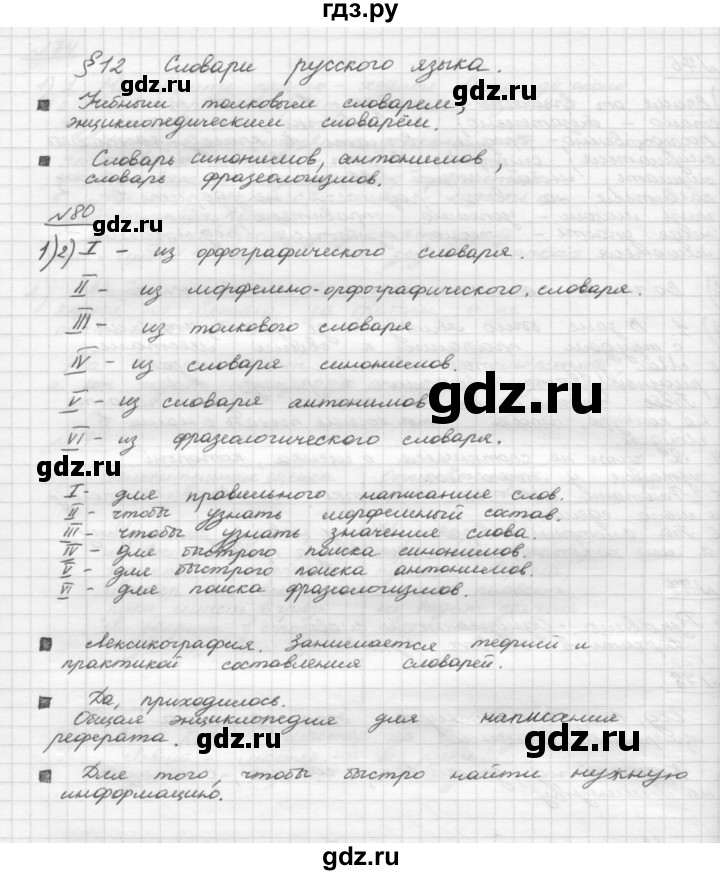 гдз.ру
§12 Словари русского языка.
gdz.ru gdz.ru
Учебным толковым словарём,
энциклопедическим словарём.
Словарь синонимов, антонимов,
словарь фразеологизмов.
№80
gdz.ru
1)2) I – из орфографического словаря.
II – из морфемено-орфографического словаря.
III – из толкового словаря
IV – из словаря синонимов.
gdz.ru
V – из словаря антонимов
VI – из фразеологического словаря.
gdz.ru
I – для правильного написание слов.
II – чтобы узнать морфемный состав.
III – чтобы узнать значение слова.
IV – для быстрого поиска синонимов.
V – для быстрого поиска антонимов.
VI – для поиска фразеологизмов.
Лексикография. Занимается теорией и
практикой составления словарей.
Да, приходилось.
Общая энциклопедия для написания
реферата.
gdz.ru gdz.ru
Для того, чтобы быстро найти нужную
информацию.
gdz.ru gdz.ru